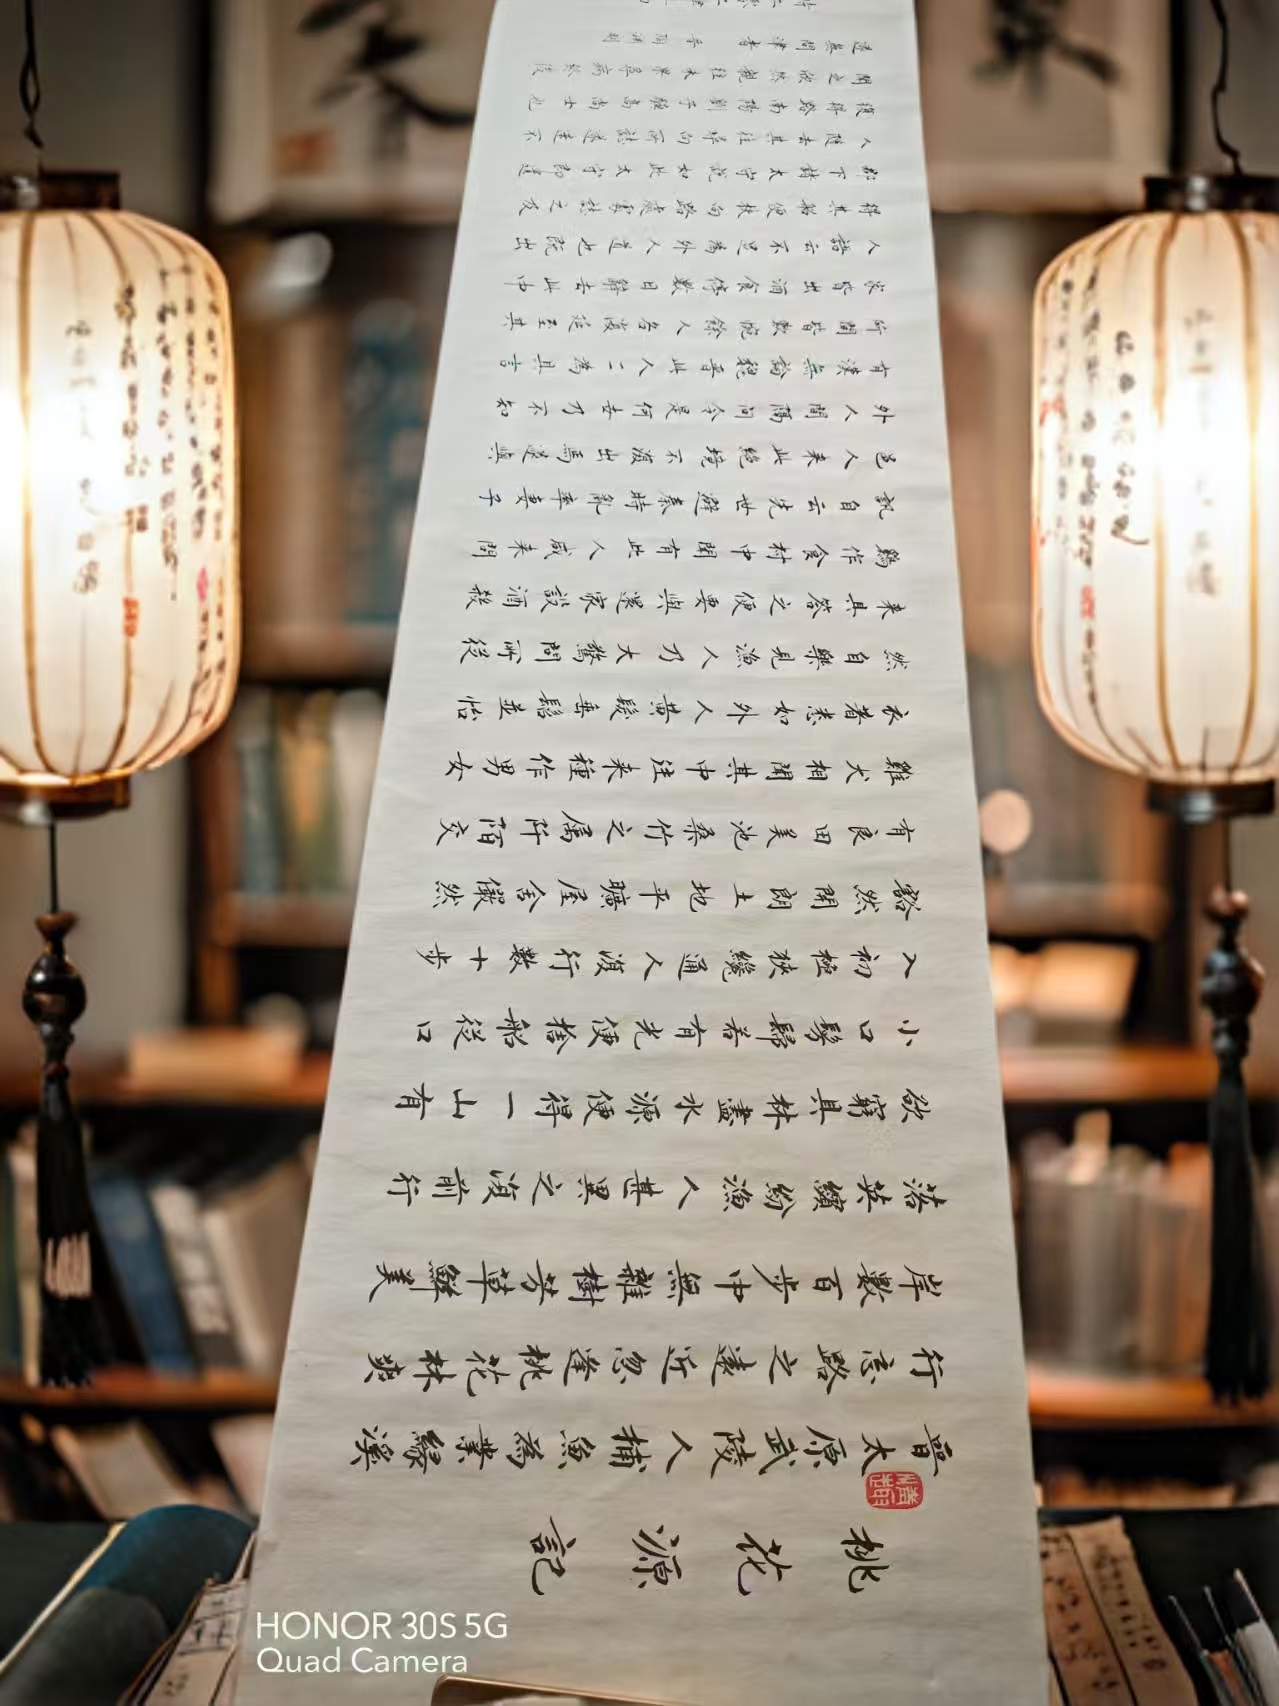 桃花源記
晉太原武陵人捕魚為業緣溪
行忘路之遠近忽逢桃花林夾
岸數百步中無雜樹芳草鮮美
落英繽紛漁人甚異之復前行
欲窮其林盡水源便得一山有
小口髣髴若有光便捨船從口
入初極狹纔通人復行數十步
豁然開朗土地平曠屋舍儼然
有良田美池桑竹之屬阡陌交
雞犬相聞其中往來種作男女
衣著悉如外人黃髮垂髫並怡
然自樂見漁人乃大驚問所從
來具答之便要與還家設酒殺
鷄作食村中聞有此人咸來問
訊自云先世避秦時亂率妻子
邑人來此絕境不復出焉遂與
外人間隔問今是何世乃不知
有漢無論魏晉此人一一為具言
所聞皆歎惋餘人各復延至其
家皆出酒食停數日辭去此中
人語云不足為外人道也既出
得其船便扶向路處處誌之及
郡下詣太守說如此太守即遣
人隨去其往尋向所誌遂迷不
復得路南陽劉子驥高尚士也
聞之欣然親往未果尋病終後
遂無問津者 陶淵明
HONOR 30S 5G
Quad Camera